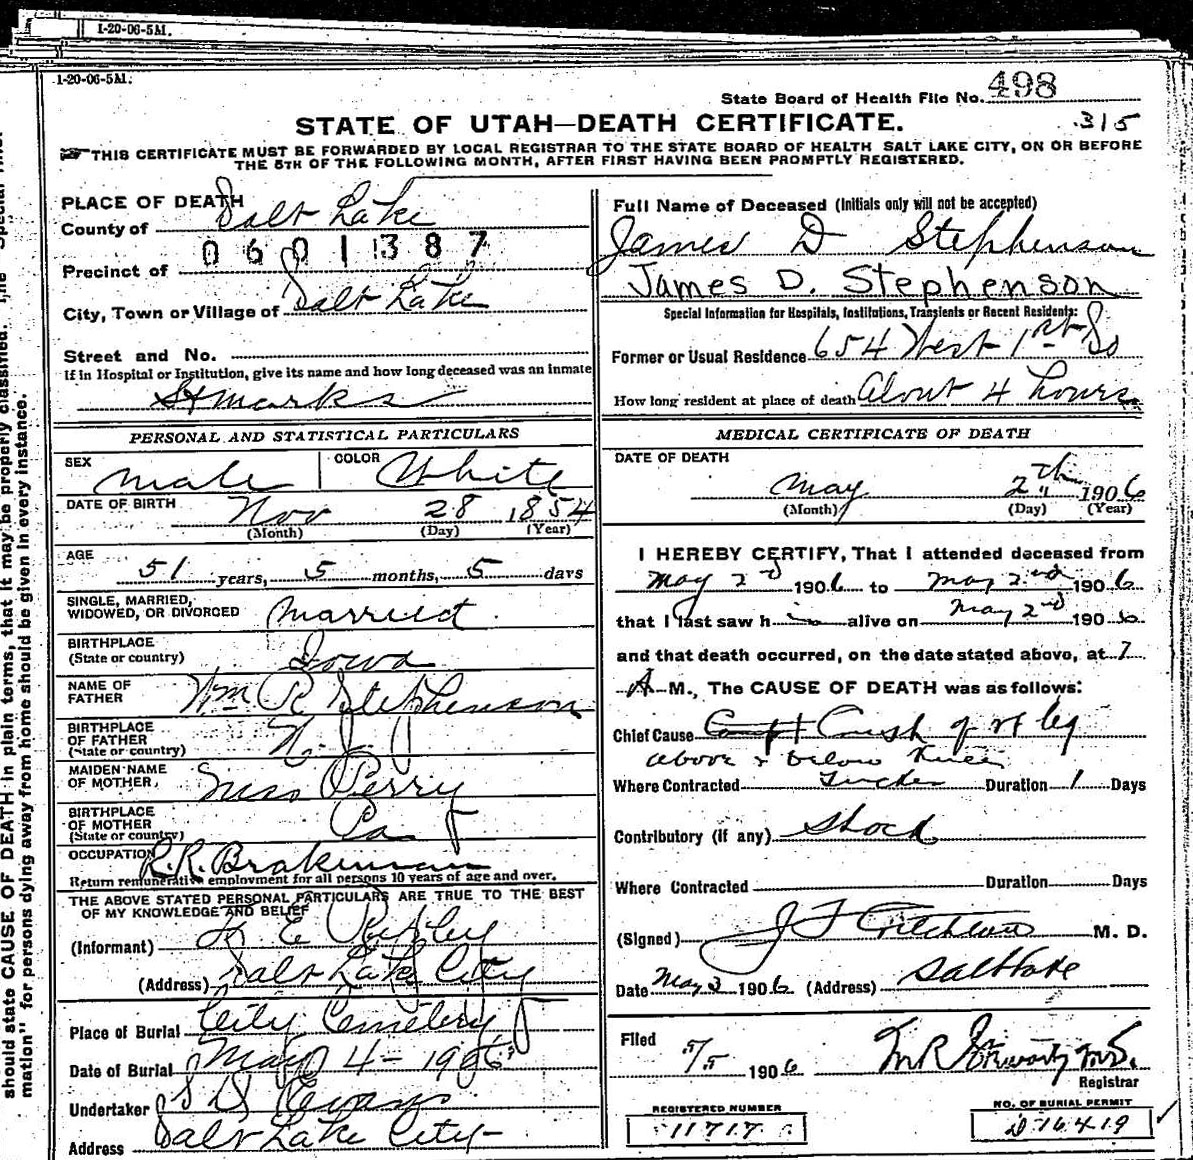 I-20-06-5M.
I-20-06-5M.
State Board of Health File No. 498
STATE OF UTAH—DEATH CERTIFICATE. 315
THIS CERTIFICATE MUST BE FORWARDED BY LOCAL REGISTRAR TO THE STATE BOARD OF HEALTH SALT LAKE CITY, ON OR BEFORE
THE 5TH OF THE FOLLOWING MONTH, AFTER FIRST HAVING BEEN PROMPTLY REGISTERED.
PLACE OF DEATH
County of Salt Lake
0601387
Precinct of
City, Town or Village of Salt Lake
Street and No.
If in Hospital or Institution, give its name and how long deceased was an inmate
St Marks
Full Name of Deceased (Initials only will not be accepted)
James D Stephenson
James D. Stephenson
Special Information for Hospitals, Institutions, Transients or Recent Residents:
Former or Usual Residence 654 West 1st So
How long resident at place of death About 4 hours
PERSONAL AND STATISTICAL PARTICULARS
SEX male COLOR White
DATE OF BIRTH Nov 28 1854
(Month) (Day) (Year)
AGE
51 years, 5 months, 5 days
SINGLE, MARRIED,
WIDOWED, OR DIVORCED married.
BIRTHPLACE
(State or country) Iowa
NAME OF
FATHER Wm R Stephenson
BIRTHPLACE
OF FATHER
(State or country) N. J
MAIDEN NAME
OF MOTHER. Miss Perry
BIRTHPLACE
OF MOTHER
(State or country) Pa
OCCUPATION R.R. Brakeman
Return remunerative employment for all persons 10 years of age and over.
THE ABOVE STATED PERSONAL PARTICULARS ARE TRUE TO THE BEST
OF MY KNOWLEDGE AND BELIEF
(Informant) E
(Address) Salt Lake City
Place of Burial City Cemetery
Date of Burial May 4-1906
Undertaker S D Evans
Address Salt Lake City
MEDICAL CERTIFICATE OF DEATH
DATE OF DEATH
May 2 1906
(Month) (Day) (Year)
I HEREBY CERTIFY, That I attended deceased from
May 2nd 1906 to May 2nd 1906
that I last saw him alive on May 2nd 1906
and that death occurred, on the date stated above, at 7
A M., The CAUSE OF DEATH was as follows:
Chief Cause Crush of rt leg
above & below Knee
Where Contracted Tucker Duration 1 Days
Contributory (if any) Shock
Where Contracted Duration Days
(Signed) J F M. D.
Date May 3 1906 (Address) Salt Lake
Filed
5/5 1906 M R Stewart M.D.
Registrar
REGISTERED NUMBER
11717
NO. OF BURIAL PERMIT
D 16419
should state CAUSE OF DEATH in plain terms, that it may be properly classified. The "Special Infor-
mation" for persons dying away from home should be given in every instance.